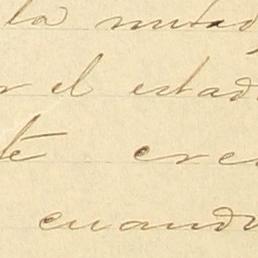 la mitad
el estad
te cre
cuando